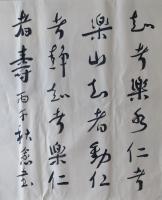 知者樂水仁者
樂山知者動仁
者靜知者樂仁
者壽丙子秋憲立